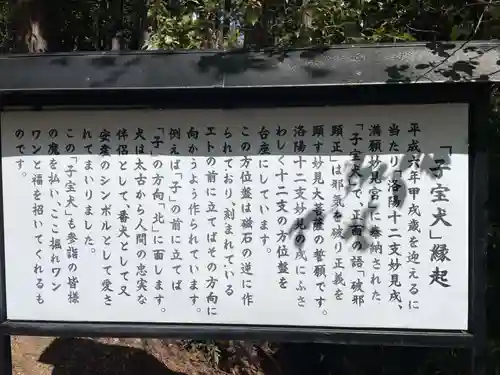 「子宝犬」縁起
平成六年甲戌歳を迎えるに
当たり「洛陽十二支妙見戌、
満願妙見宮」に奉納された
「子宝犬」で、正面の語「破邪
顕正」は邪気を破り正義を
顕す妙見大菩薩の誓願です。
洛陽十二支妙見の戌にふさ
わしく十二支の方位盤を
台座にしています。
この方位盤は磁石の逆に作
られており、刻まれている
エトの前に立てばその方向に
向かうよう作られています。
例えば「子」の前に立てば
「子」の方向「北」に面します。
犬は太古から人間の忠実な
伴侶として、番犬として又
安産のシンボルとして愛さ
れてまいりました。
この「子宝犬」も参詣の皆様
の魔を払い、ここ掘れワン
ワンと福を招いてくれるも
のです。